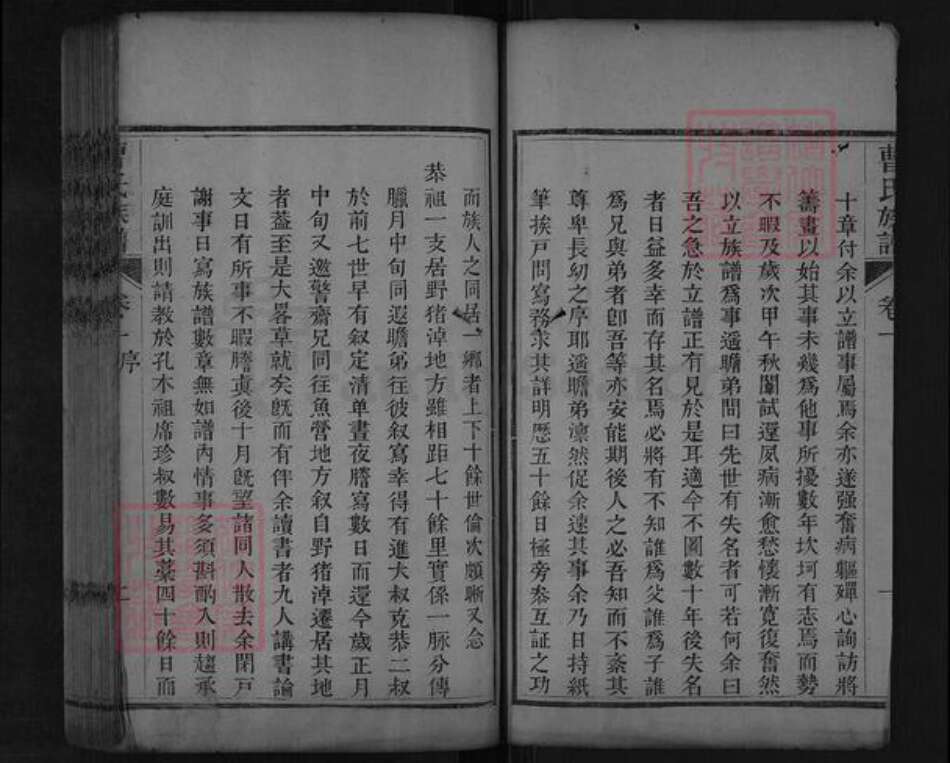 曹氏族譜
卷一
十章付余以立譜事屬焉余亦遂强奮病軀嬋心詢訪將
籌畫以始其事未幾爲他事所擾數年坎坷有志焉而勢
不暇及歲次甲午秋闈試還夙病漸愈愁懷漸寬復奮然
以立族譜爲事遥瞻弟問曰先世有失名者可若何余曰
吾之急於立譜正有見於是耳適今不圖數十年後失名
者日益多幸而存其名焉必將有不知誰爲父誰爲子誰
爲兄與弟者卽吾等亦安能期後人之必吾知而不紊其
尊卑長幼之序耶遥瞻弟凛然促余速其事余乃日持紙
筆挨戸問寫務求其詳明歷五十餘日極旁叅互証之功
而族人之同居一鄉者上下十餘世倫次頗晰又念
恭祖一支居野猪淖地方雖相距七十餘里實係一脉分傳
臘月中旬同遐瞻弟往彼叙寫幸得有進大叔克恭二叔
於前七世早有叙定清单晝夜謄寫數日而還今歲正月
中旬又邀警齋兄同往魚營地方叙自野猪淖遷居其地
者葢至是大畧草就矣旣而有伴余讀書者九人講書論
文日有所事不暇謄眞後十月旣望諸同人散去余閉戸
謝事日寫族譜數章無如譜内情事多須斟酌入則趨承
庭訓出則請教於孔木祖席珍叔數易其藁四十餘日而
卷一 序
二